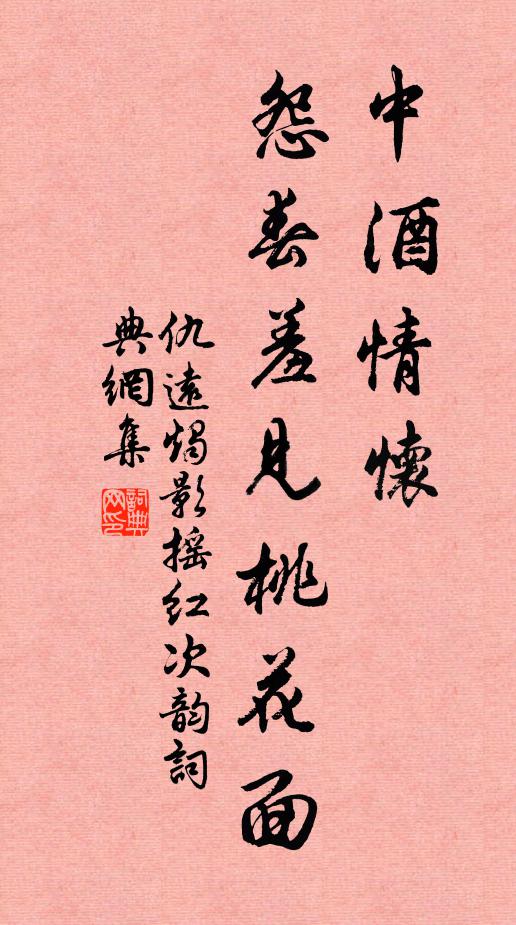 中酒情懷
怨春羞見桃花面
仇遠燭影搖紅次韵詞
典網集
詞典網印